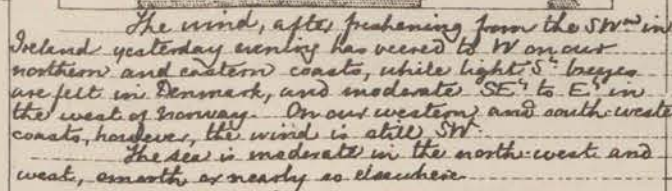 The wind, after freshening from the SWd in
Ireland yesterday evening has veered to W on our
northern and eastern coasts, while light Sly breezes
are felt in Denmark, and moderate SEly to Ely in
the west of Norway. On our western and south-west
coasts, however, the wind is still SW.
The sea is moderate in the north-west and
west, smooth or nearly so elsewhere.